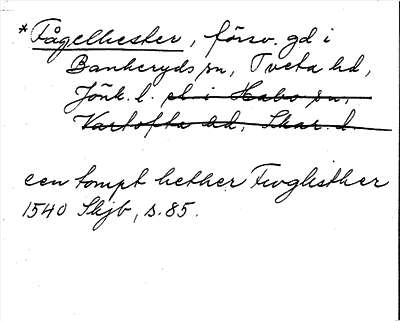 *Fågelhester, försv. gd i
Bankeryds sn, Tveta hd,
Jönk. l. el. i Habo sn,
Vartofta hd, Skar. l.
een tompt hether Fwglisther
1540 Skjb, s. 85.